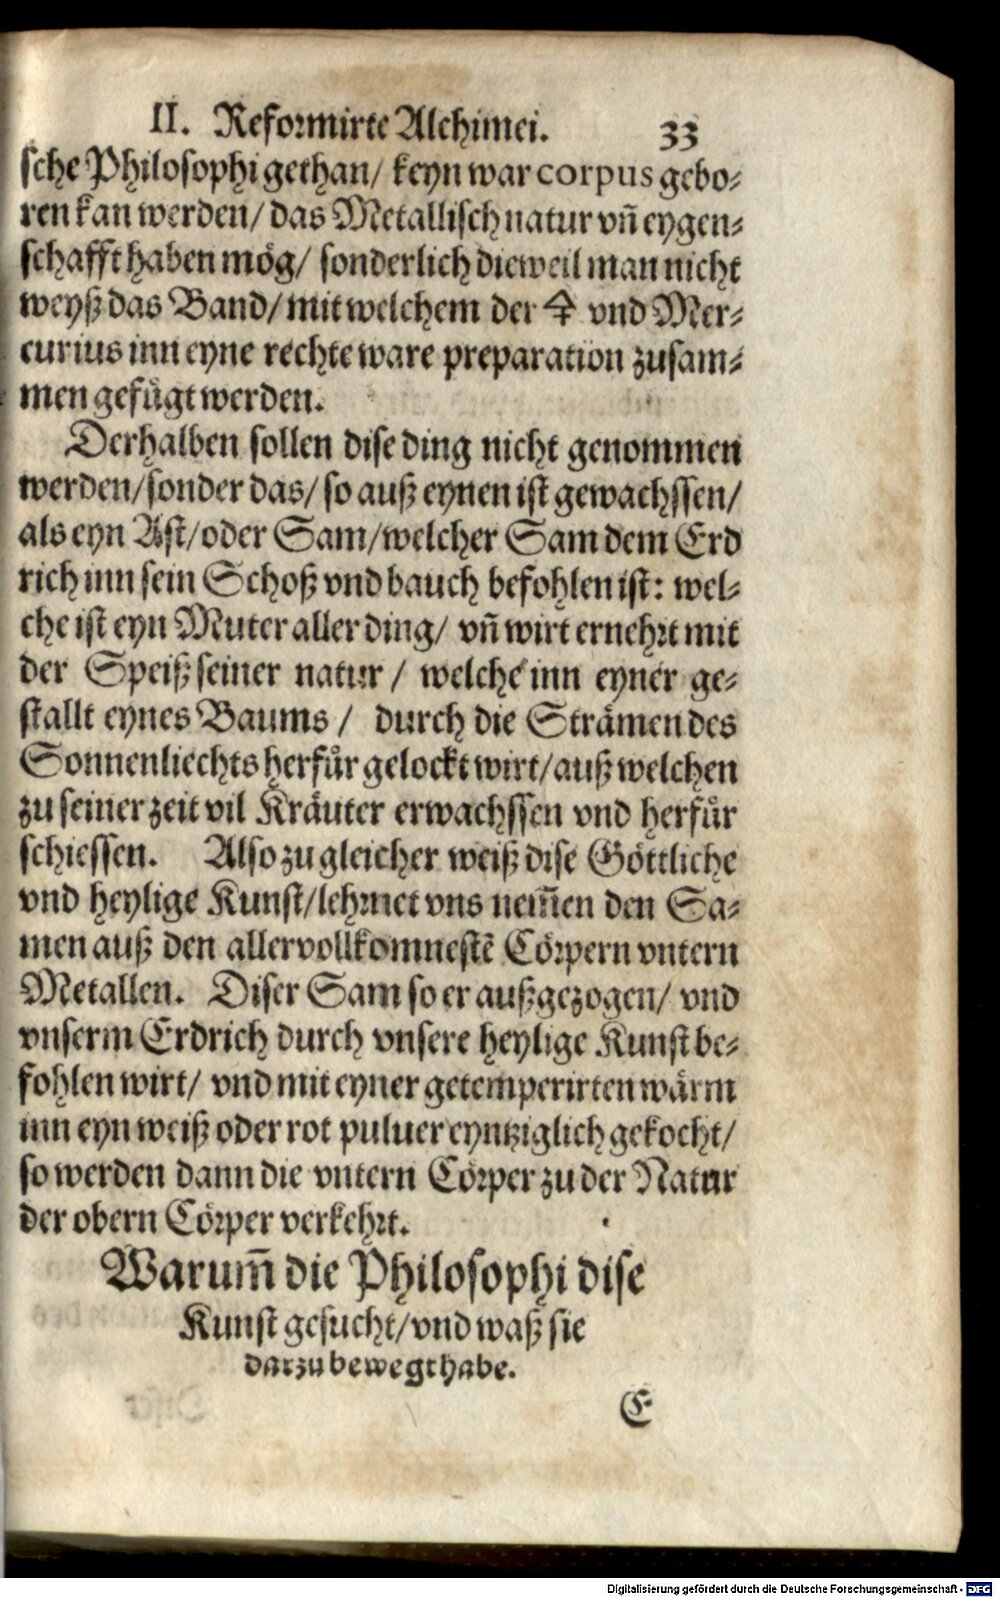 II. Reformirte Alchimei. 33
sche Philosophi gethan/ keyn war corpus gebo⸗
ren kan werden/ das Metallisch natur vn̄ eygen⸗
schafft haben mög/ sonderlich dieweil man nicht
weyß das Band/ mit welchem der 🜍 vnd Mer⸗
curius inn eyne rechte ware preparation zusam⸗
men gefügt werden.
Derhalben sollen dise ding nicht genommen
werden/ sonder das/ so auß eynen ist gewachssen/
als eyn Ast/ oder Sam/ welcher Sam dem Erd
rich inn sein Schoß vnd bauch befohlen ist: wel⸗
che ist eyn Muter aller ding/ vn̄ wirt ernehrt mit
der Speiß seiner natur / welche inn eyner ge⸗
stallt eynes Baums / durch die Strämen des
Sonnenliechts herfůr gelockt wirt/ auß welchen
zu seiner zeit vil Kräuter erwachssen vnd herfůr
schiessen. Also zu gleicher weiß dise Göttliche
vnd heylige Kunst/ lehrnet vns nem̄en den Sa⸗
men auß den allervollkomnestē Cörpern vntern
Metallen. Diser Sam so er außgezogen/ vnd
vnserm Erdrich durch vnsere heylige Kunst be⸗
fohlen wirt/ vnd mit eyner getemperirten wärm
inn eyn weiß oder rot puluer eyntziglich gekocht/
so werden dann die vntern Cörper zu der Natur
der obern Cörper verkehrt.
Warum̄ die Philosophi dise
Kunst gesucht/ vnd waß sie
darzu bewegt habe.
E
Digitalisierung gefördert durch die Deutsche Forschungsgemeinschaft - DFG